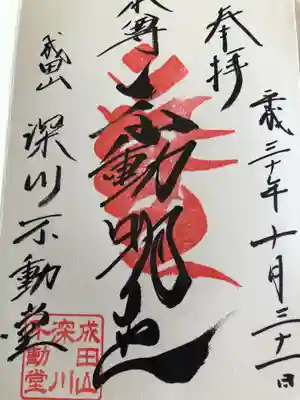 奉拝
平成三十年十月三十一日
本尊
不動明王
成田山
深川不動堂
成田山
深川
不動堂